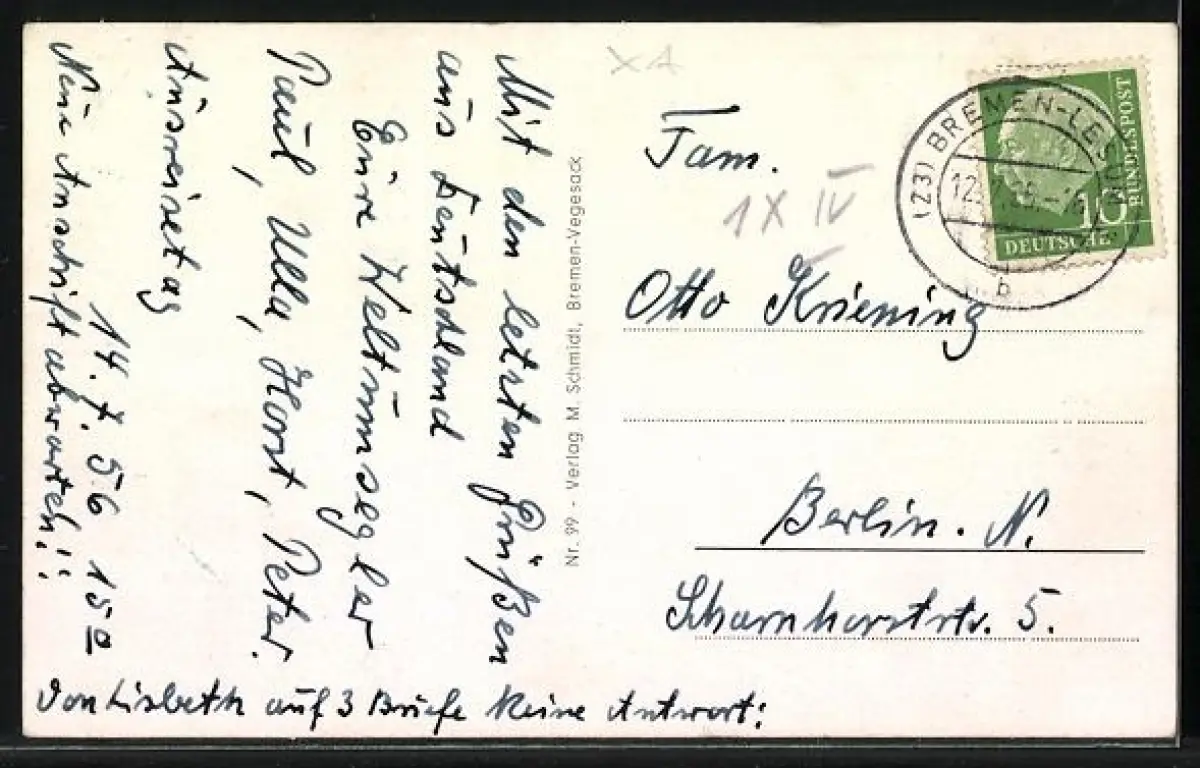 Mit den letzten Grüßen
aus Deutschland
Eure Weltumsegler
Paul, Ulla, Horst, Peter.
Ausreisetag
14. 7. 56 15 00
Neue Anschrift abwarten!!
Von Lisbeth auf 3 Briefe keine Antwort!
Nr. 99 - Verlag M. Schmidt, Bremen-Vegesack
X A
Fam.
1 X IV
Otto Kriening
Berlin. N.
Scharnhorststr. 5.
(23) BREMEN-
b
10
DEUTSCHE
BUNDESPOST